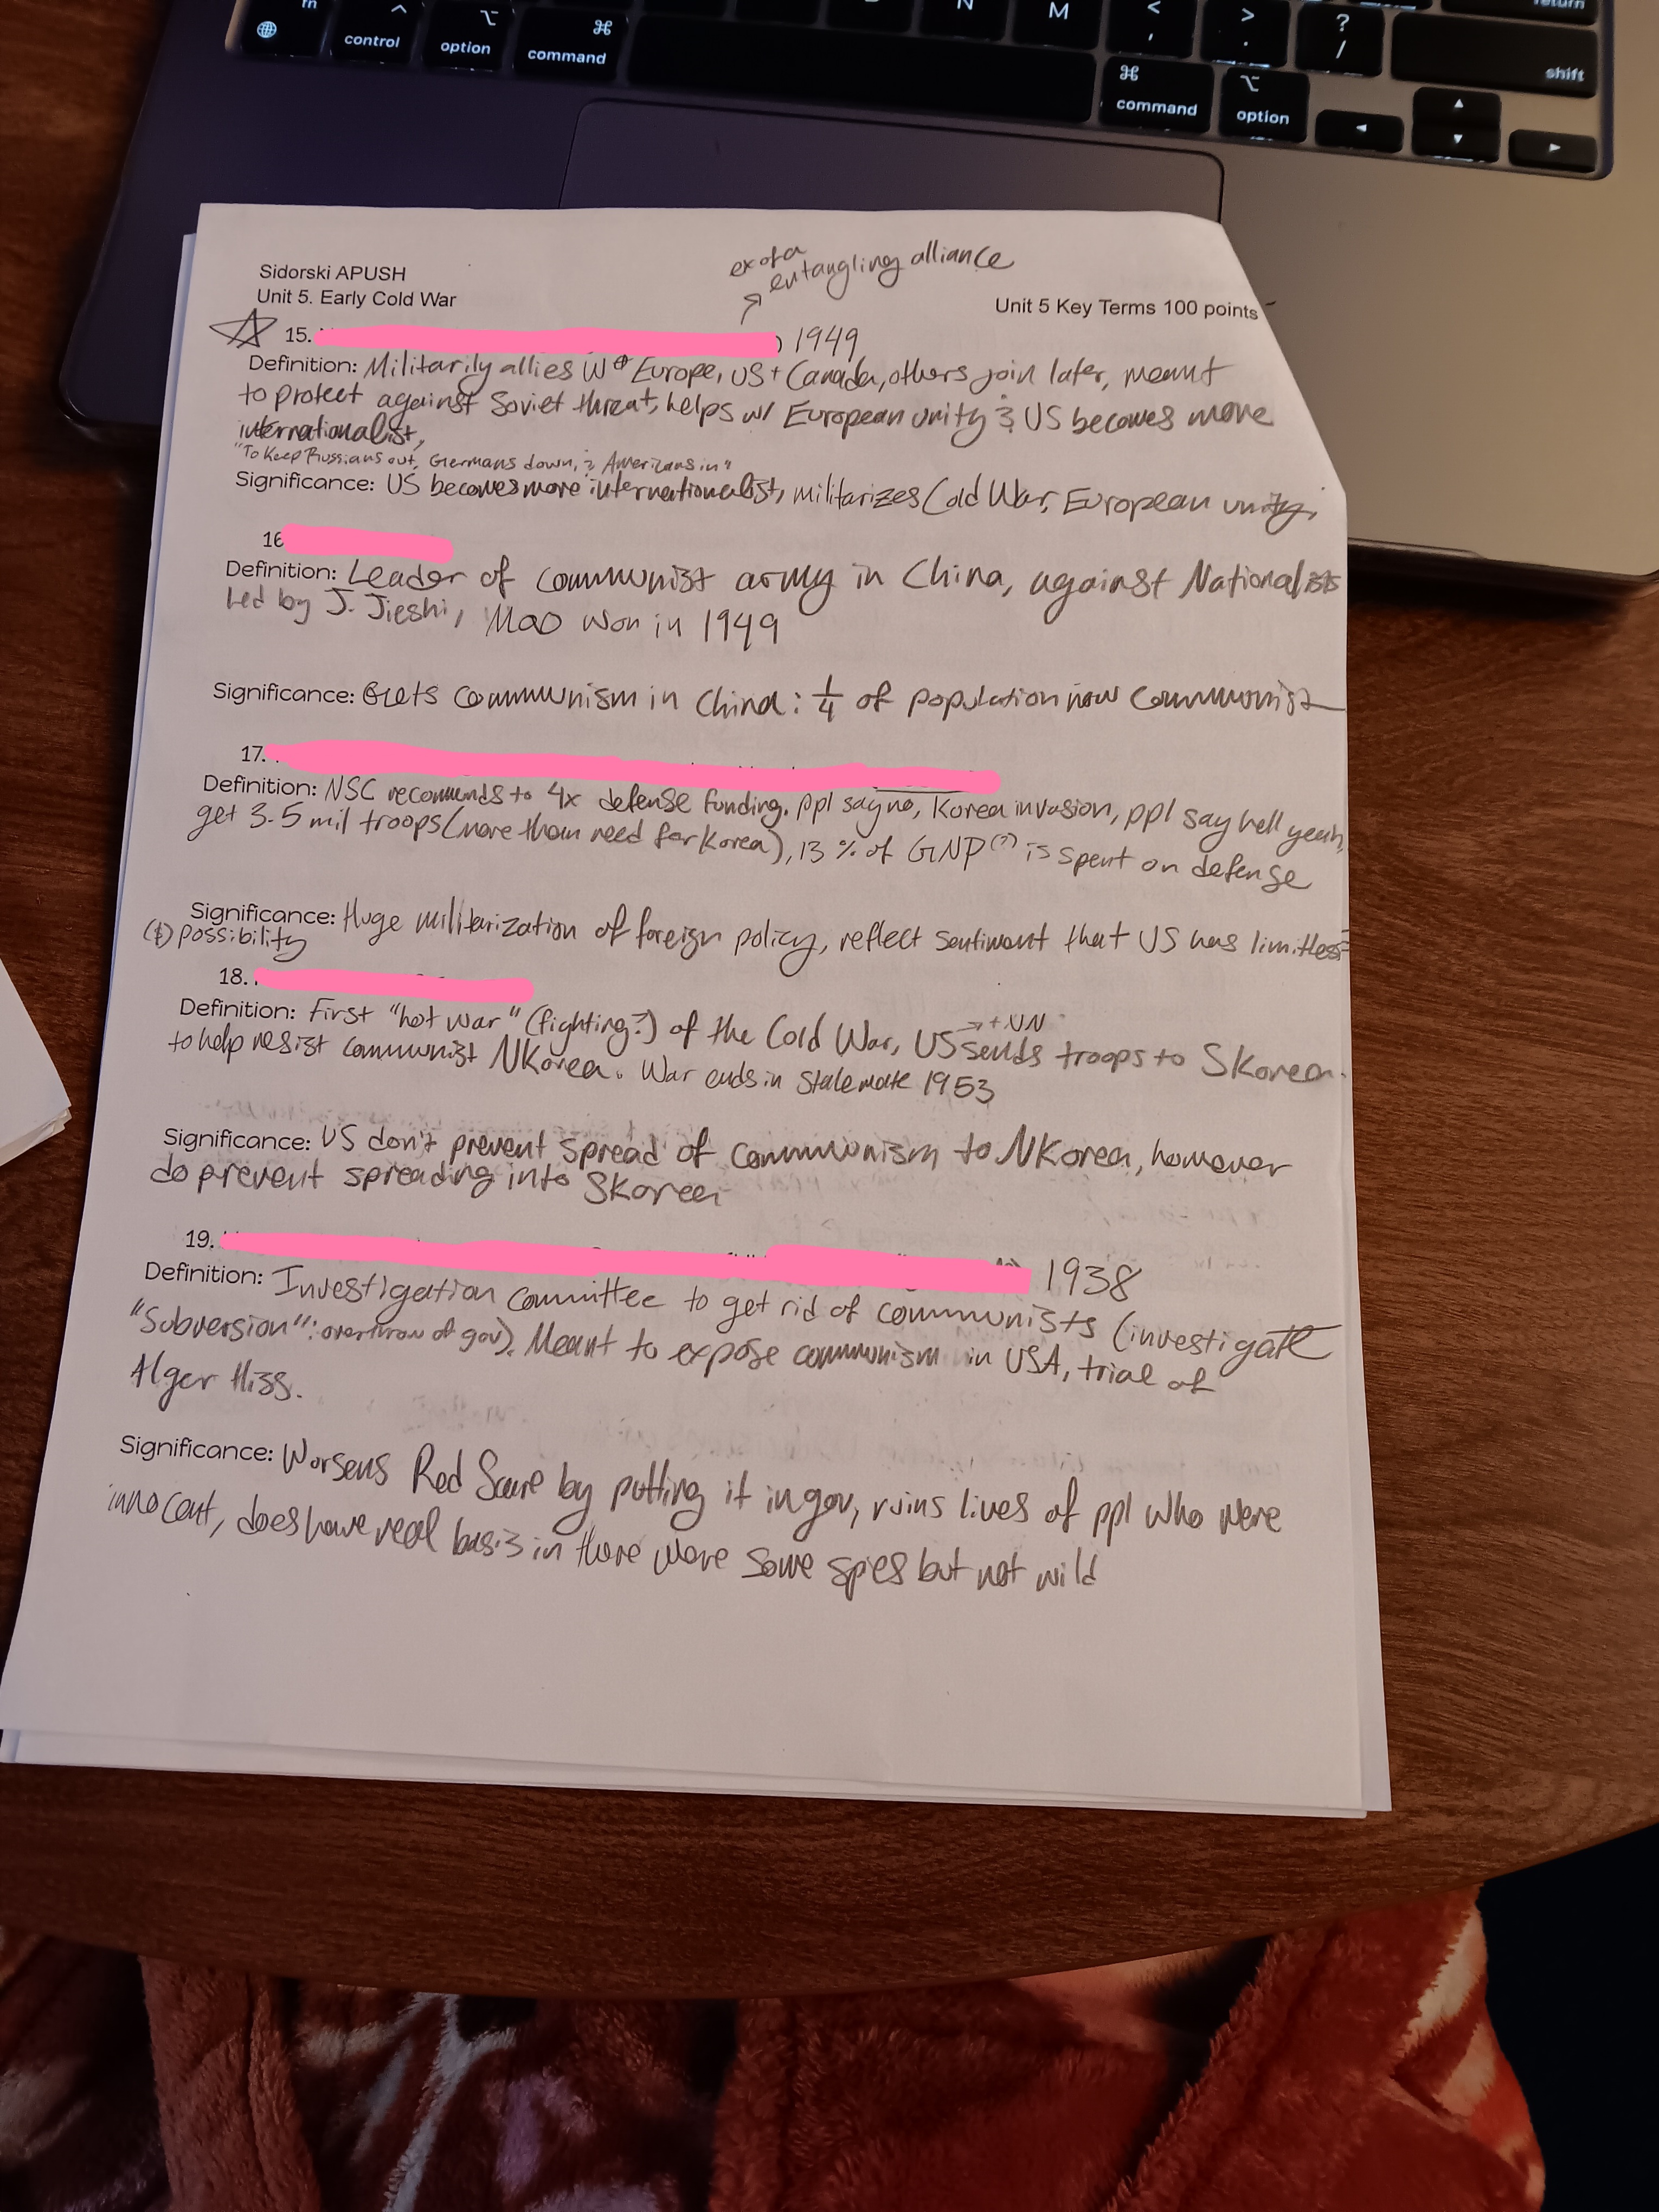 fn
control
option
command
N
M
<
,
>
.
?
/
return
shift
command
option
ex of a
entangling alliance
Sidorski APUSH
Unit 5. Early Cold War
Unit 5 Key Terms 100 points
15. ) 1949
Definition: Militarily allies W Europe, US + Canada, others join later, meant
to protect against Soviet threat, helps w/ European unity & US becomes more
internationalist,
"To Keep Russians out, Germans down, & Americans in"
Significance: US becomes more internationalist, militarizes Cold War, European unity,
16
Definition: Leader of communist army in China, against Nationalists
Led by J. Jieshi, Mao won in 1949
Significance: Gets communism in China: 1/4 of population now communist
17.
Definition: NSC recommends to 4x defense funding. ppl say no, Korea invasion, ppl say hell yeah,
get 3.5 mil troops (more than need for Korea), 13 % of GNP (?) is spent on defense
Significance: Huge militarization of foreign policy, reflect sentiment that US has limitless
possibility
18.
Definition: First "hot war" (fighting?) of the Cold War, US → + UN sends troops to SKorea
to help resist communist NKorea. War ends in stalemate 1953
Significance: US don't prevent spread of communism to NKorea, however
do prevent spreading into SKorea
19. 1938
Definition: Investigation committee to get rid of communists (investigate
"Subversion": overthrow of gov). Meant to expose communism in USA, trial of
Alger Hiss.
Significance: Worsens Red Scare by putting it in gov, ruins lives of ppl who were
innocent, does have real basis in there were some spies but not wild